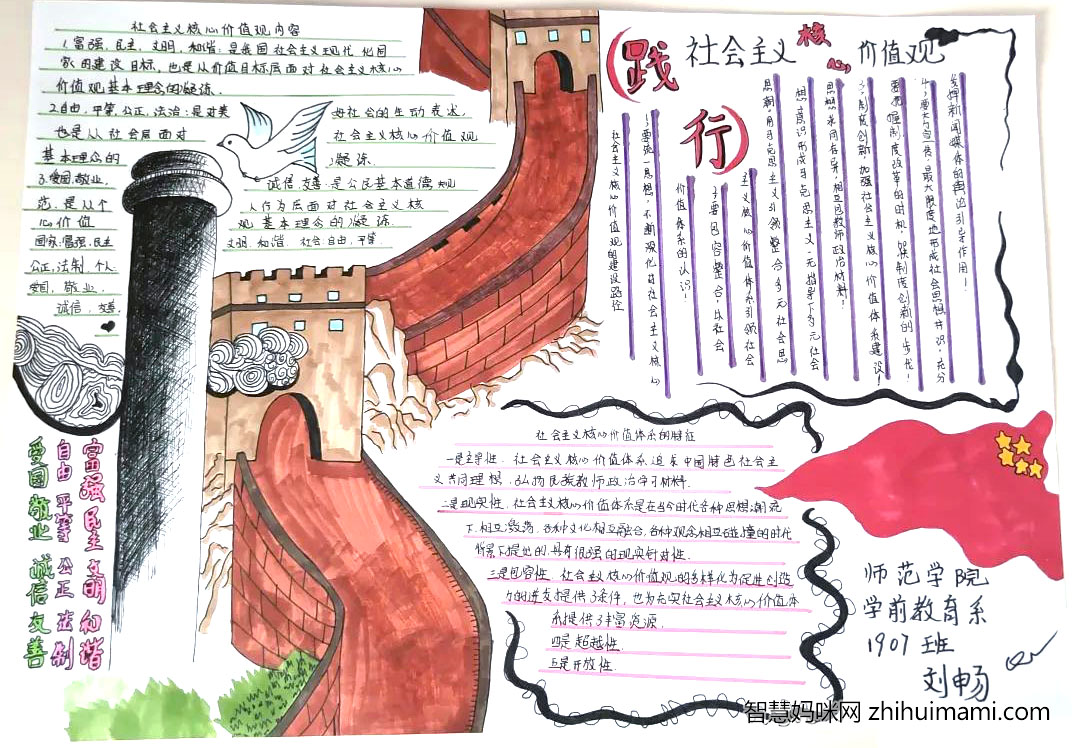 社会主义核心价值观内容
1.富强、民主、文明、和谐：是我国社会主义现代化国
家的建设目标，也是从价值目标层面对社会主义核心
价值观基本理念的凝练.
2.自由、平等、公正、法治：是对美
好社会的生动表述，
也是从社会层面对
社会主义核心价值观
基本理念的
凝练.
3.爱国、敬业、
诚信、友善：是公民基本道德规
范，是从个
人行为层面对社会主义核
心价值
观基本理念的凝练.
国家:富强、民主
文明、和谐. 社会:自由、平等.
公正,法制 个人
爱国、敬业.
诚信、友善.
践行
社会主义核心价值观
社会主义核心价值观的建设路径
1、要统一思想，不断深化对社会主义核心
价值体系的认识！
2、要包容整合，以社会
主义核心价值体系引领社会
思潮,用马克思主义引领整合多元社会思
想意识形成马克思主义一元指导下多元社会
3、制度创新，加强社会主义核心价值体系建设！
要把握制度改革的时机，加快制度创新的步伐！
4、要大力宣传，最大限度地形成社会思想共识，充分
发挥新闻媒体的舆论引导作用！
社会主义核心价值体系的特征
一是主导性. 社会主义核心价值体系追求中国特色社会主
义共同理想，弘扬民族教师政治学习材料.
二是现实性. 社会主义核心价值体系是在当今时代各种思想潮流
下，相互激荡、各种文化相互融合，各种观念相互碰撞的时代
背景下提出的.具有很强的现实针对性.
三是包容性. 社会主义核心价值观的多样化为促进创造
力的迸发提供了条件，也为充实社会主义核心价值体
系提供了丰富资源.
四是超越性.
五是开放性.
富强 民主 文明 和谐
自由 平等 公正 法制
爱国 敬业 诚信 友善
师范学院
学前教育系
1907班
刘畅
智慧妈咪网 zhihuimami.com